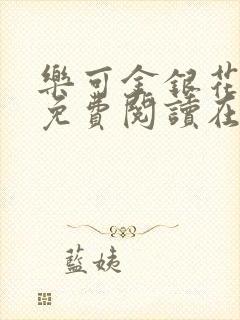 樂可金銀花
免費閱讀在
藍姨